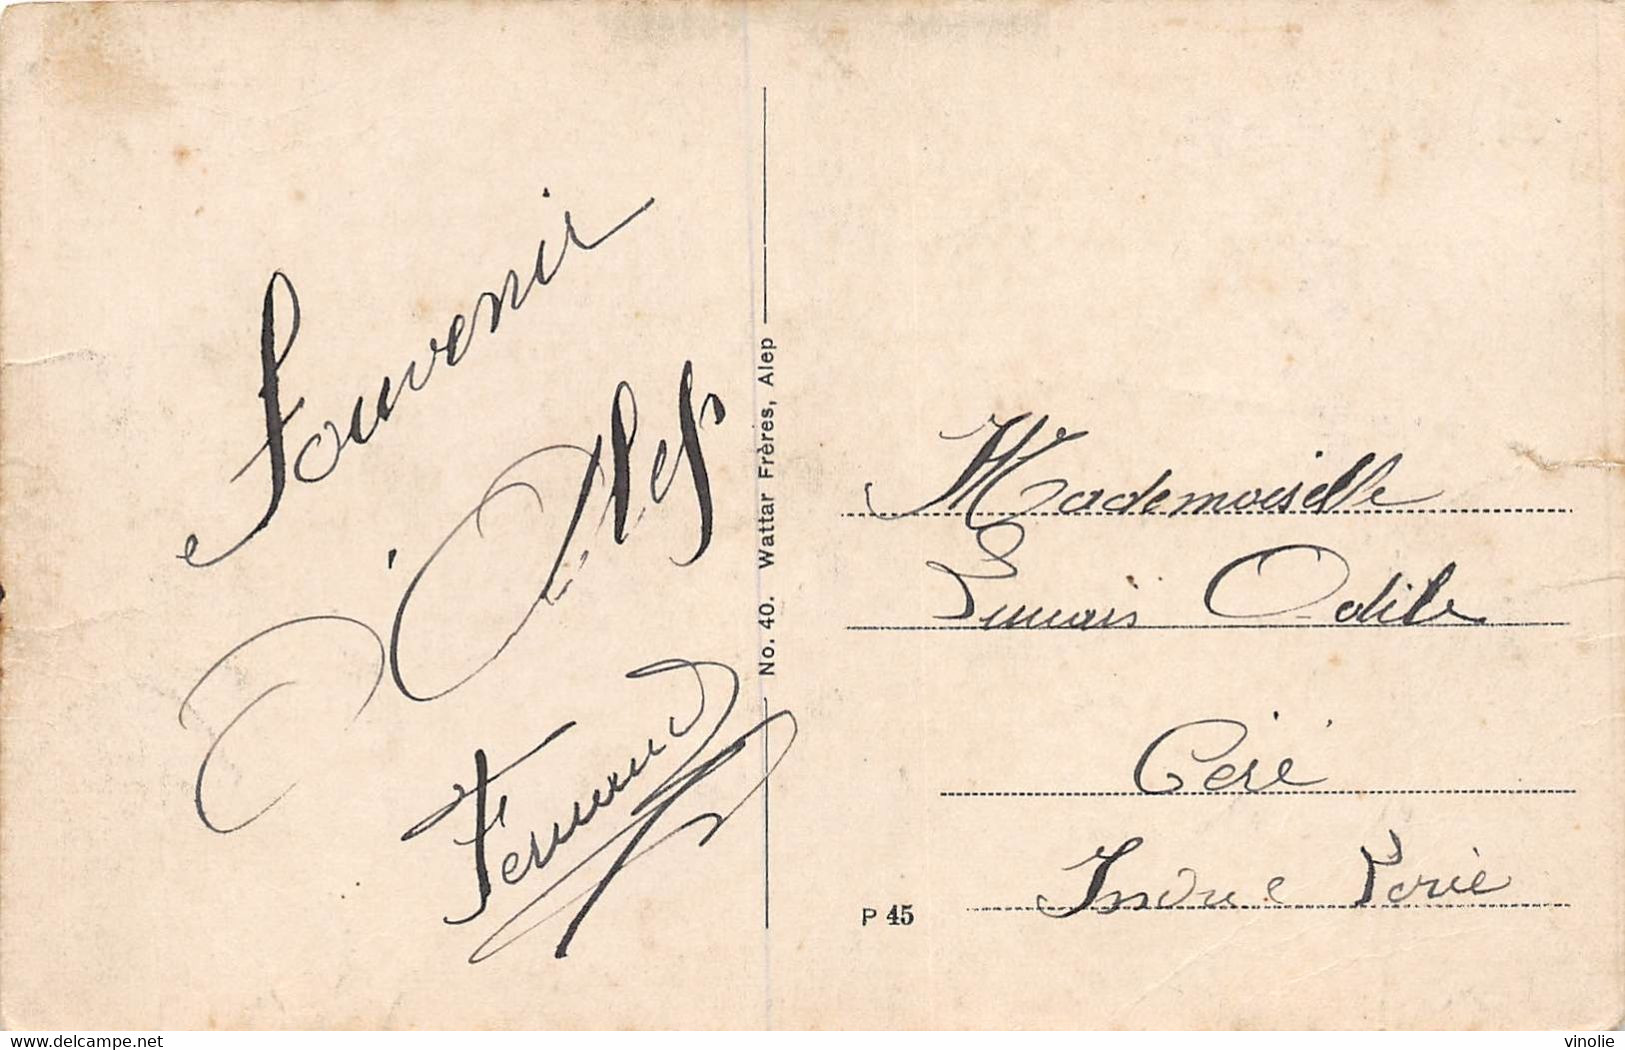 Souvenir
d'Alep
Fernand
No. 40. Wattar Frères, Alep
Mademoiselle
Odile
Céré
Indre
P 45
www.delcampe.net
vinolie